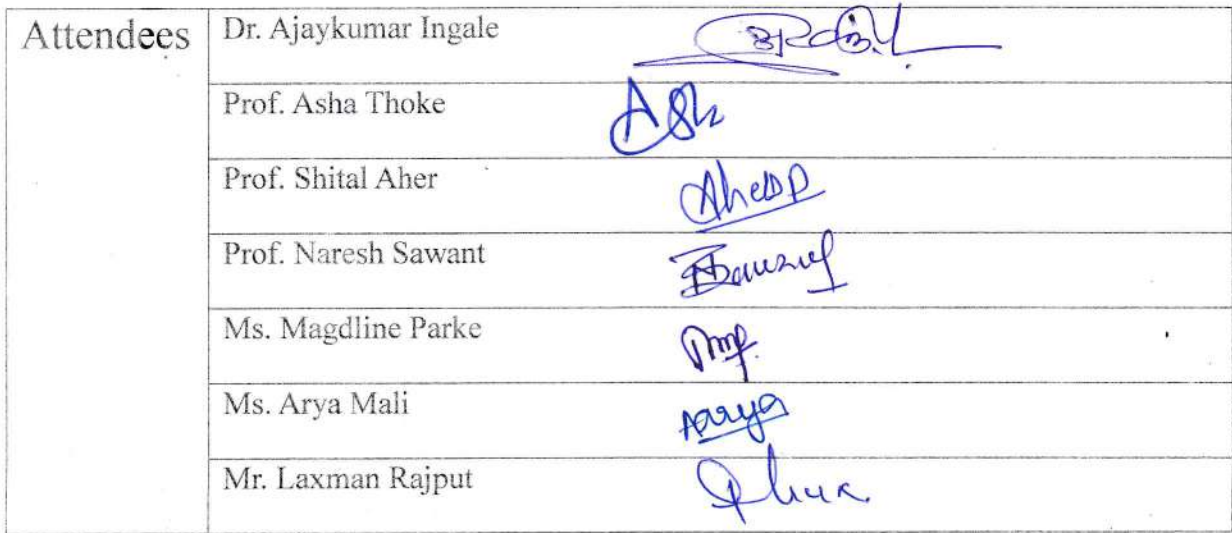 Attendees
Dr. Ajaykumar Ingale
Prof. Asha Thoke
Prof. Shital Aher
Prof. Naresh Sawant
Ms. Magdline Parke
Ms. Arya Mali
Arya
Mr. Laxman Rajput